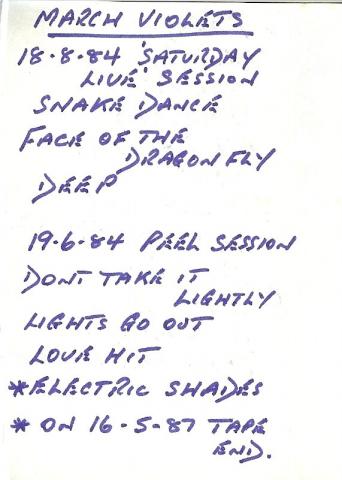 MARCH VIOLETS
18-8-84 'SATURDAY
LIVE' SESSION
SNAKE DANCE
FACE OF THE
DRAGON FLY
DEEP
19-6-84 PEEL SESSION
DONT TAKE IT
LIGHTLY
LIGHTS GO OUT
LOVE HIT
*ELECTRIC SHADES
* ON 16-5-87 TAPE
END.